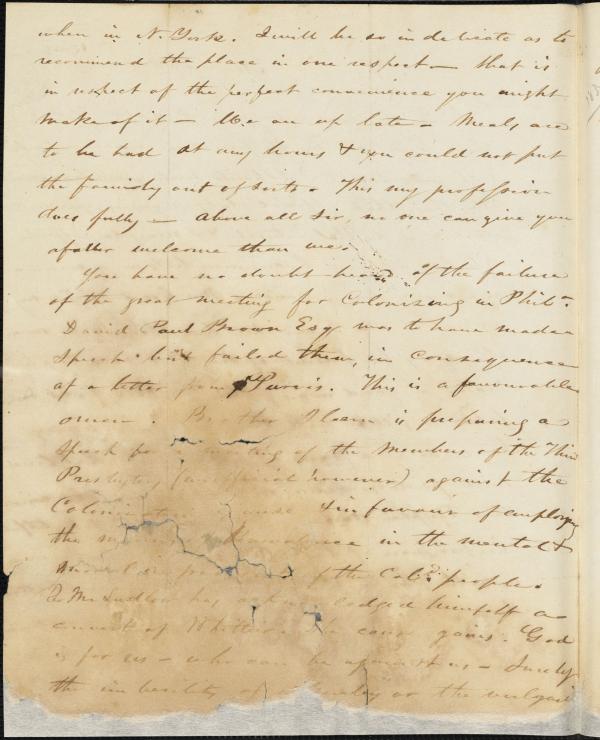 when in N. York. I will be so indelicate as to
recommend the place in one respect — that is
in respect of the perfect convenience you might
make of it — We are up late — Meals are
to be had at any hours & you could not put
the family out of sorts. This my profession
does fully — above all Sir, no one can give you
a fuller welcome than we.
You have no doubt heard of the failure
of the great meeting for Colonizing in Phila.
David Paul Brown Esq was to have made a
speech but failed them, in consequence
of a letter from Purvis. This is a favourable
omen. Brother is preparing a
speech for a meeting of the members of the Third
Presbytery (unofficial however) against the
Colonization cause & in favour of employing
the in the mental &
moral of the Cold. people.
Mr Ludlow has lodged himself a
convert of Whittier. The cause gains. God
is for us — who can be against us — Surely
the imbecility of or the vulgar